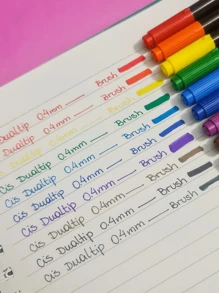 Dualtip 0.4mm Brush
Dualtip 0.4mm Brush
Dualtip 0.4mm Brush
Cis Dualtip 0.4mm Brush
Cis Dualtip 0.4mm Brush
Cis Dualtip 0.4mm Brush
Cis Dualtip 0.4mm Brush
Cis Dualtip 0.4mm Brush
Cis Dualtip 0.4mm